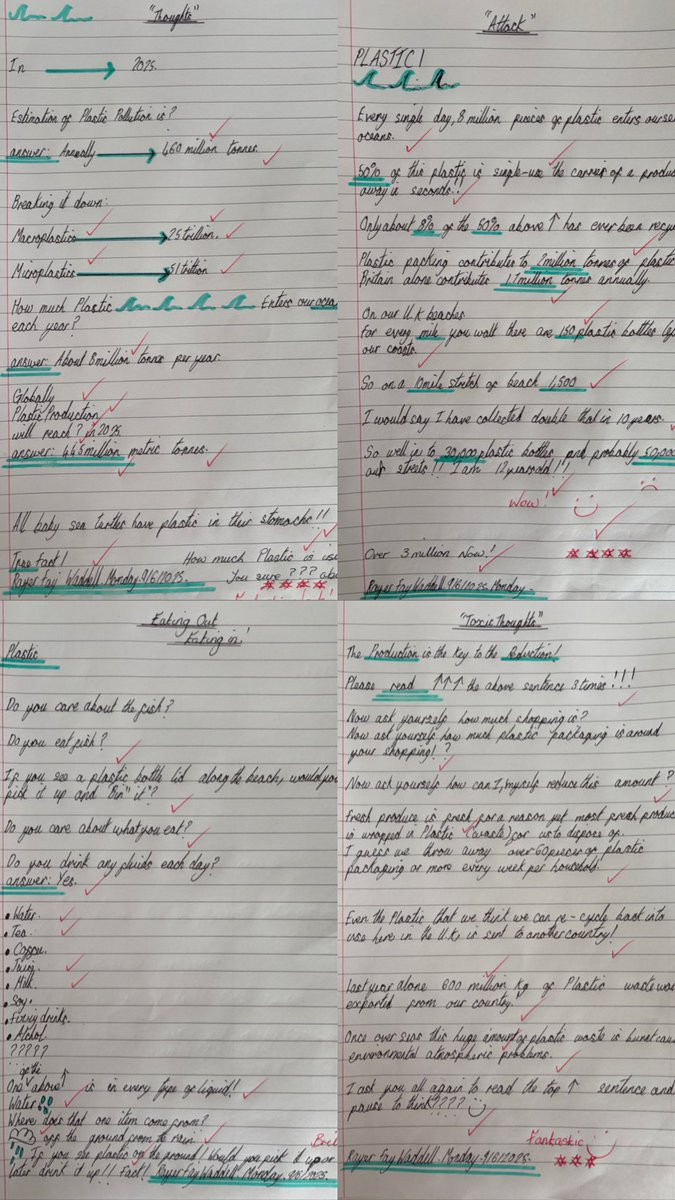 "Thoughts"
In 2025.
Estimation of Plastic Pollution is?
answer: Annually 460 million tonnes.
Breaking it down:
Macroplastics 25 trillion.
Microplastics 51 trillion
How much Plastic Enters our
each year?
answer: About 8 million tonns per year
Globally
Plastic Production
will reach? in 2025
answer: 445 million metric tonnes.
All baby sea turtles have plastic in their stomachs!!
True Fact!
How much Plastic is
Fay Waddell. Monday. 9/6/2025.
You sure???
"Attack"
PLASTIC!
Every single day, 8 million pieces of plastic enters
oceans.
50% of this plastic is single-use the carrier of a
away in seconds!!
Only about 8% of the 50% above ↑ has ever been
Plastic packing contributes to 2 million tonnes of
Britain alone contributes 1.7 million tonnes annually.
On our U.K beaches
For every mile you walk there are 150 plastic bottles
our coasts.
So on a 10 mile stretch of beach 1,500
I would say I have collected double that in 10 years.
So well in to 30,000 plastic bottles, and probably
our streets!! I am 12 years old!!
Wow!
Over 3 million Now!
Fay Waddell. 9/6/2025. Monday.
Eating Out
Eating in!
Plastic
Do you care about the fish?
Do you eat fish?
If you see a plastic bottle lid along the beach, would you
pick it up and Bin" it"?
Do you care about what you eat?
Do you drink any fluids each day?
answer: Yes.
• Water.
• Tea.
• Milk.
• Soy.
• Fizzy drinks.
?????
of the
One above ↑ is in every type of liquid!
Water
Where does that one item come from?
off the ground from the rain
!! If you see plastic on the ground! Would you pick it up or
later drink it up!! Fact! Fay Waddell. Monday. 9/6/2025.
"Toxic Thoughts"
The Production is the key to the Reduction!
Please read ↑↑↑ the above sentence 3 times!!!
Now ask yourself how much shopping is?
Now ask yourself how much plastic packaging is around
your shopping!?
Now ask yourself how can I, myself reduce this amount?
Fresh produce is fresh for a reason yet most fresh
is wrapped in Plastic (waste) for us to dispose of.
I guess we throw away over 60 pieces of plastic
packaging or more every week per household.
Even the Plastic that we think we can re-cycle back into
use here in the U.K, is sent to another country!
Last year alone 600 million Kg of Plastic waste
exported from our country.
Once over seas this huge amount of plastic waste is
environmental atmospheric problems.
I ask you all again to read the top ↑ sentence and
pause to think????
Fantastic
Fay Waddell. Monday. 9/6/2025.